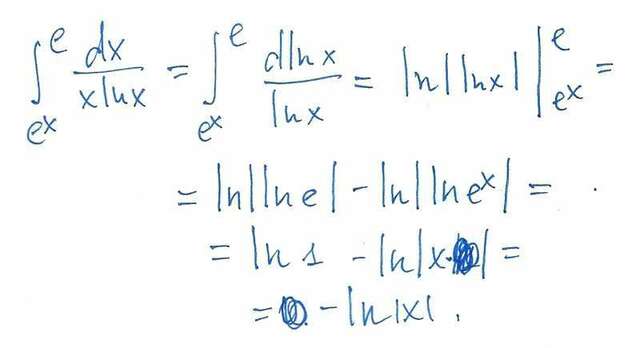 ∫_{e^x}^{e} dx/(x ln x) = ∫_{e^x}^{e} d ln x/ln x = ln|ln x| |_{e^x}^{e} =
= ln|ln e| - ln|ln e^x| =
= ln 1 - ln|x| =
= - ln|x|.